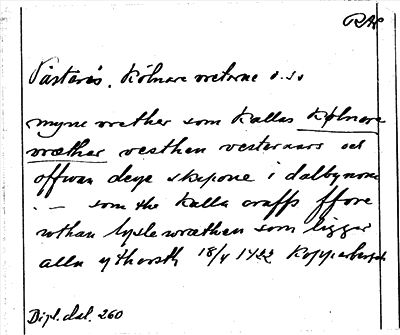 RAp
Västerås. Kölnare vretarne o.s.v
myne wrether som kallas Kolnare
wræther vesthan vesteraars oc
offwan deye skepone i dalbynom
. — som the kalla craffs ffore
nthan lysle wræthen som ligger
alla ytherst 18/4 1422 Kopparbergsh
Dipl. dal. 260